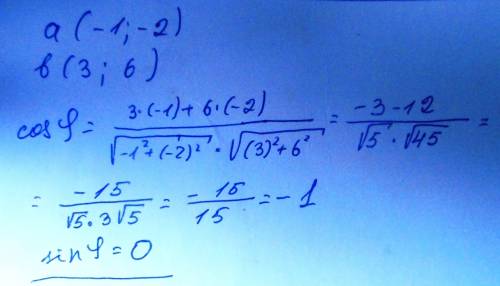 a (-1; -2)
b (3; 6)
cos φ = (3·(-1) + 6·(-2)) / (√(-1² + (-2)²) · √((3)² + 6²)) = (-3 - 12) / (√5 · √45) =
= -15 / (√5 · 3√5) = - 15 / 15 = - 1
sin φ = 0